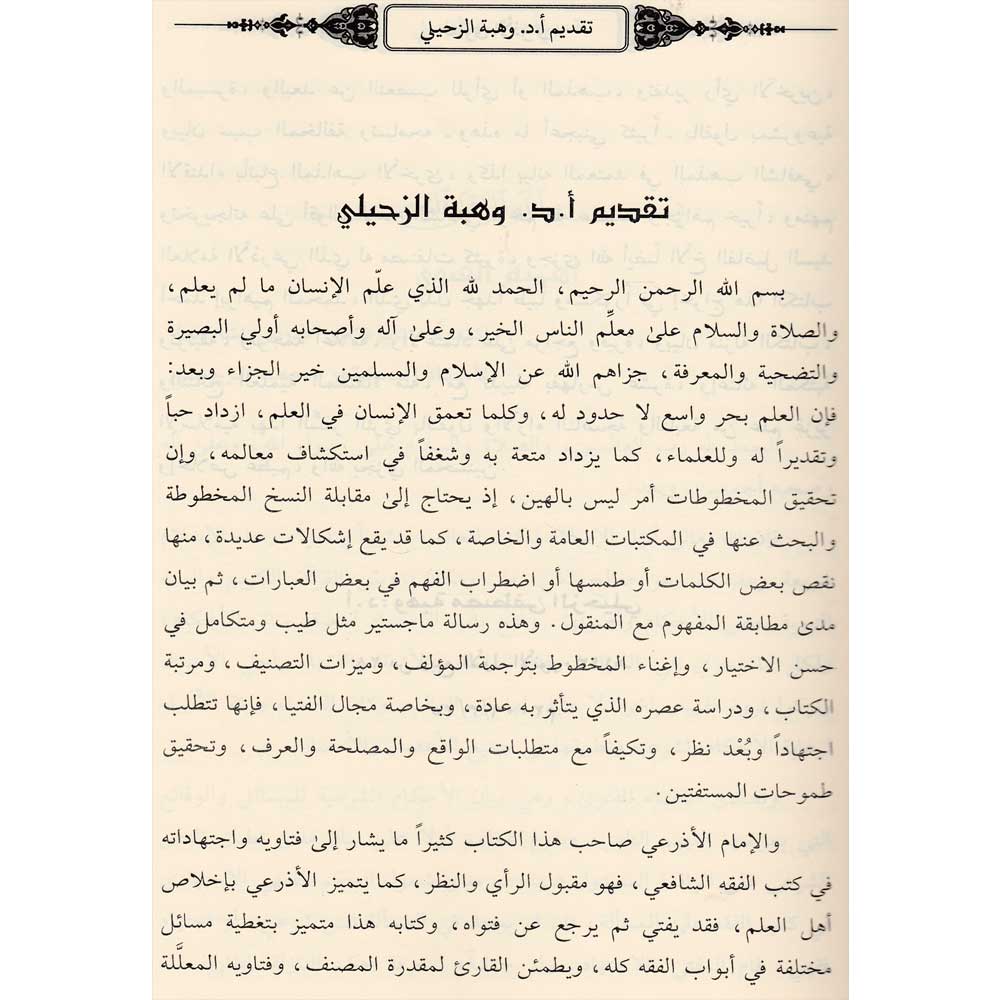 تقديم أ.د. وهبة الزحيلي
تقديم أ.د. وهبة الزحيلي
بسم الله الرحمن الرحيم، الحمد لله الذي علّم الإنسان ما لم يعلم،
والصلاة والسلام علىٰ معلِّم الناس الخير، وعلىٰ آله وأصحابه أولي البصيرة
والتضحية والمعرفة، جزاهم الله عن الإسلام والمسلمين خير الجزاء وبعد:
فإن العلم بحر واسع لا حدود له، وكلما تعمق الإنسان في العلم، ازداد حباً
وتقديراً له وللعلماء، كما يزداد متعة به وشغفاً في استكشاف معالمه، وإن
تحقيق المخطوطات أمر ليس بالهين، إذ يحتاج إلىٰ مقابلة النسخ المخطوطة
والبحث عنها في المكتبات العامة والخاصة، كما قد يقع إشكالات عديدة، منها
نقص بعض الكلمات أو طمسها أو اضطراب الفهم في بعض العبارات، ثم بيان
مدىٰ مطابقة المفهوم مع المنقول. وهذه رسالة ماجستير مثل طيب ومتكامل في
حسن الاختيار، وإغناء المخطوط بترجمة المؤلف، وميزات التصنيف، ومرتبة
الكتاب، ودراسة عصره الذي يتأثر به عادة، وبخاصة مجال الفتيا، فإنها تتطلب
اجتهاداً وبُعْد نظر، وتكيفاً مع متطلبات الواقع والمصلحة والعرف، وتحقيق
طموحات المستفتين.
والإمام الأذرعي صاحب هذا الكتاب كثيراً ما يشار إلىٰ فتاويه واجتهاداته
في كتب الفقه الشافعي، فهو مقبول الرأي والنظر، كما يتميز الأذرعي بإخلاص
أهل العلم، فقد يفتي ثم يرجع عن فتواه، وكتابه هذا متميز بتغطية مسائل
مختلفة في أبواب الفقه كله، ويطمئن القارئ لمقدرة المصنف، وفتاويه المعلَّلة